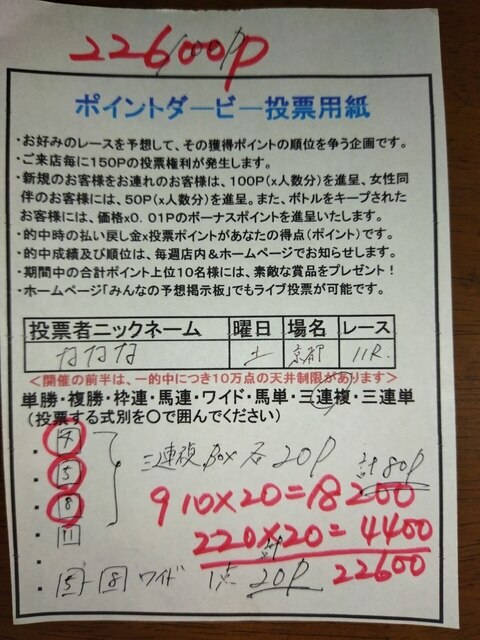 22600P
ポイントダービー投票用紙
・お好みのレースを予想して、その獲得ポイントの順位を争う企画です。
・ご来店毎に150Pの投票権利が発生します。
・新規のお客様をお連れのお客様は、100P(x人数分)を進呈、女性同
伴のお客様には、50P(x人数分)を進呈。また、ボトルをキープされた
お客様には、価格x0.01Pのボーナスポイントを進呈いたします。
・的中時の払い戻し金x投票ポイントがあなたの得点(ポイント)です。
・的中成績及び順位は、毎週店内&ホームページでお知らせします。
・期間中の合計ポイント上位10名様には、素敵な賞品をプレゼント!
・ホームページ「みんなの予想掲示板」でもライブ投票が可能です。
投票者ニックネーム 曜日 場名 レース
ななな 土 京都 11R.
<開催の前半は、一的中につき10万点の天井制限があります>
単勝・複勝・枠連・馬連・ワイド・馬単・三連複・三連単
(投票する式別を○で囲んでください)
・4
・5 三連複BOX各20P 計80P
・8 910×20=18200
・11 220×20=4400
計 22600
・5-8 ワイド 1点 20P